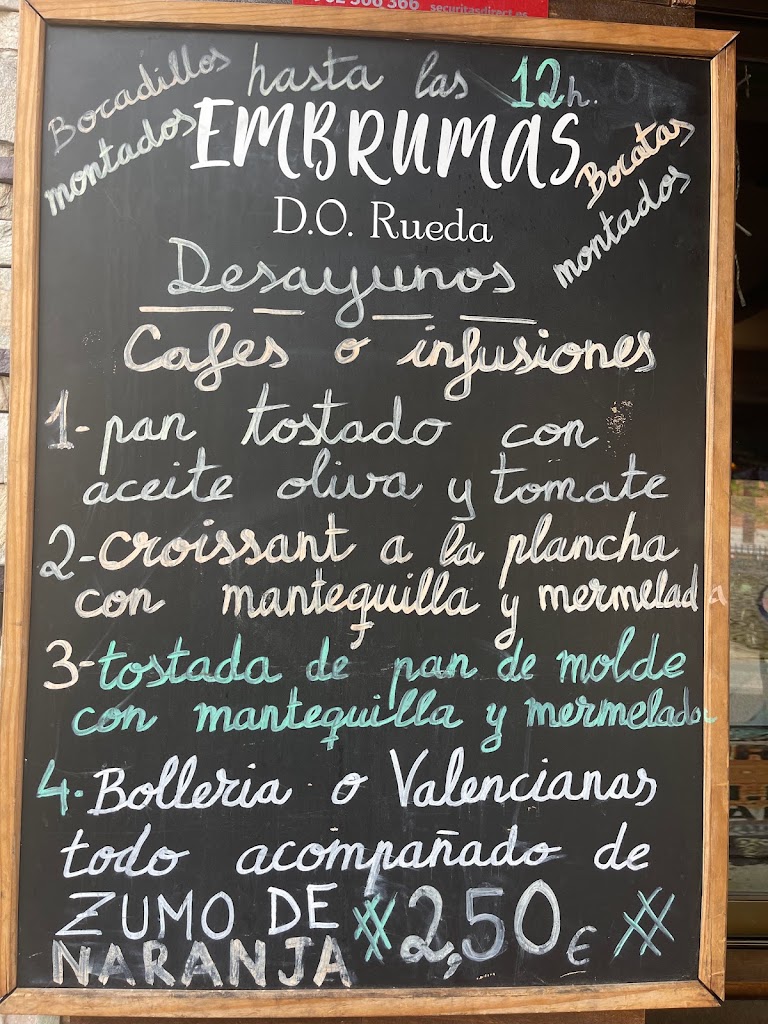 902 500 366 securitasdirect.es
Bocadillos
montados
hasta las 12h.
EMBRUMAS
D.O. Rueda
Bocatas
montados
Desayunos
Cafes o infusiones
1- pan tostado con
aceite oliva y tomate
2- croissant a la plancha
con mantequilla y mermelada
3- tostada de pan de molde
con mantequilla y mermelada
4. Bolleria o Valencianas
todo acompañado de
ZUMO DE
NARANJA 2,50€